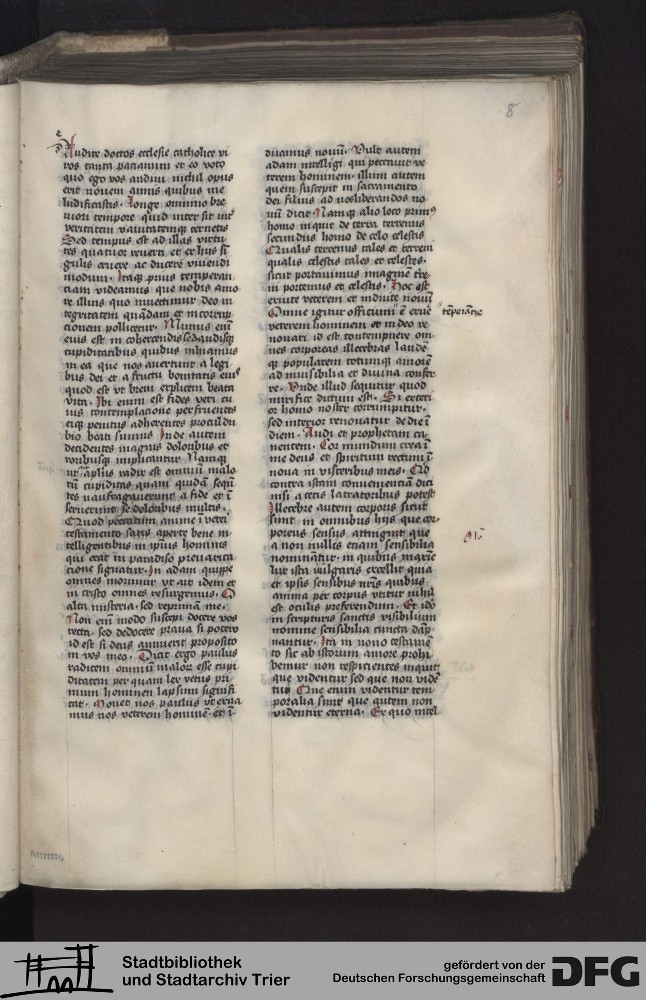 8
Audite doctos ecclesie catholice vi
ros tanta pacatum et eo voto
quo ego vos audiui nichil opus
erit nouem annis quibus me
ludificastis. longe omnino bre
uiori tempore quid inter sit int
veritatem vanitatemque cernetis
Sed tempus est ad illas virtu
tes quatuor reuerti et ex hijs si
gulis eruere ac ducere viuendi
modum. Itaque prius temperan
ciam videamus que nobis amo
ris illius quo innectimur deo in
tegritatem quandam et incorrup
cionem pollicetur. Munus enim
eius est in cohercendis sedandisque
cupiditatibus quibus inhiamus
in ea que nos auertunt a legi
bus dei et a fructu bonitatis eius
quod est vt breui explicem beata
vita. Ibi enim est sedes veri cu
ius contemplacione perfruentes
eique penitus adherentes procul du
bio beati sumus Inde autem
decidentes magnis doloribus et
erroribus implicantur Namque
ut apostolus radix est omnium malo
rum cupiditas quam quidam sequen
tes naufragauerunt a fide et i
seruerunt se doloribus multis.
Quod peccatum anime i veteri
testamento satis aperte bene in
telligentibus in ipsius hominis
qui erat in paradiso preuarica
cione signatur. In adam quippe
omnes morimur vt ait idem et
in cristo omnes resurgemus. O
alta misteria. sed reprimam me.
Non enim modo suscepi docere vos
recta. sed dedocere praua si potero
id est si deus annuerit proposito
in vos meo. Dicit ergo paulus
radicem omnium malorum esse cupi
ditatem per quam lex vetus pri
mum hominem lapsum signifi
cat. Monet nos paulus vt exua
mus nos veterem hominem. et i
duamus nouum. Vult autem
adam intelligi qui peccauit ve
terem hominem. illum autem
quem suscepit in sacramento
dei filius ad nos liberandos no
uum dicit Namque alio loco primus
homo inquit de terra terrenus
secundus homo de celo celestis
Qualis terrenus tales et terreni
qualis celestis tales et celestes.
sicut portauimus imaginem terre
ni portemus et celestis. Hoc est
exuite veterem et induite nouum
Omne igitur officium e exue
temperancie
veterem hominem et in deo re
nouari id est contempnere om
nes corporeas illecebras laude
que popularem totumque amorem
ad inuisibilia et diuina confer
re. Unde illud sequitur quod
mirifice dictum est. Si exteri
or homo noster corrumpitur.
sed interior renouatur de die i
diem. Audi et prophetam ca
nentem. Cor mundum crea i
me deus et spiritum rectum i
noua in visceribus meis. Quid
contra istam conuenienciam dici
nisi a cecis latratoribus potest
Illecebre autem corporis sitae
sunt in omnibus hijs que cor
poreus sensus attingit que
a non nullis etiam sensibilia
nominantur. in quibus maxime
lux ista wlgaris excellit quia
et ipsis sensibus nostris quibus
anima per corpus vtitur nihil
est oculis preferendum. Et ideo
in scripturis sanctis visibilium
nomine sensibilia cuncta damp
nantur. Ita in nouo testamen
to sic ab istorum amore prohi
bemur non respicientes inquit
que videntur sed que non viden
tur Que enim videntur tem
poralia sunt que autem non
videntur eterna. Ex quo intel
Stadtbibliothek
und Stadtarchiv Trier
gefördert von der
Deutschen Forschungsgemeinschaft
DFG